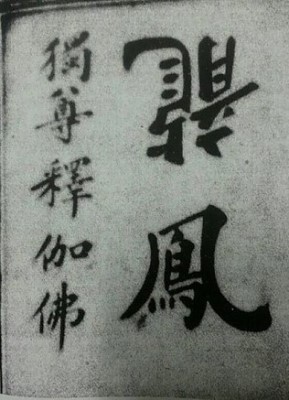 鳳
獨尊釋伽佛